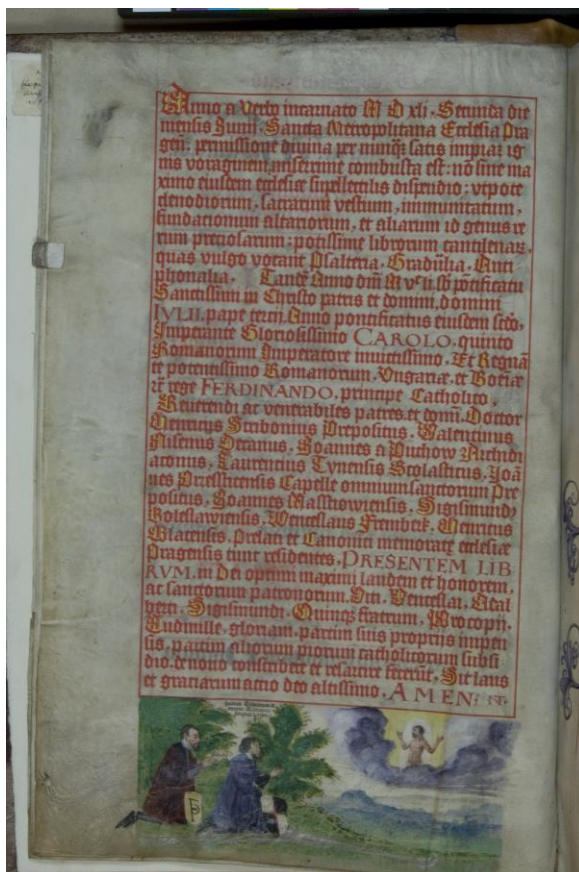 Anno a Verbo incarnato M D xli. Secunda die
mensis Junii. Sancta Metropolitana Ecclesia Pra
gen̄. permissione divina per nimiū satis impiar ig
nis voraginem miserrime combusta est: nō sine ma
ximo eiusdem ecclesiae supellectilis dispendio: vtpote
clenodiorum, sacrarum vestium, immunitatum,
fundationum altariorum, et aliarum id genus re
rum preciosarum: potissime librorum cantilenarū.
quas vulgo vocant Psalteria, Gradualia, Anti
phonalia. Tandē Anno dn̄i sb pōtificatu
Sanctissimi in Christo patris et domini, domini
IVLII. pape tercij, Anno pontificatus eiusdem
Imperante Gloriosissimo CAROLO. quinto
Romanorum Imperatore invictissimo. Et Regnā
te potentissimo Romanorum, Vngariæ, et Boēmiæ
rē rege FERDINANDO, principe Catholico,
Reverendi ac venerabiles patres et domī. Doctor
Henricus Scribonius Prepositus. Valentinus
Decanus, Joannes a Puchow Archidi
aconus, Laurentius Tynensis Scolasticus, Joā
nes Capelle omnium sanctorum Pre
positus, Joannes Sigismundꝰ
Boleslaviensis, Wenceslaus Henricus
Glacensis. Prelati et Canonici memoratę ecclesiæ
Pragensis tunc residentes, PRESENTEM LIB
RVM. in Dei optimi maximi laudem et honorem,
ac sanctorum patronorum. Viti. Venceslai, Adal
berti. Sigismundi. Quinqꝫ fratrum, Procopij,
Ludmille, gloriam, partim suis proprijs impen
sis, partim aliorum piorum catholicorum subsi
dio. denouo conscribere et resarcire fecerūt. Sit laus
et gratiarum actio deo altissimo, AMEN